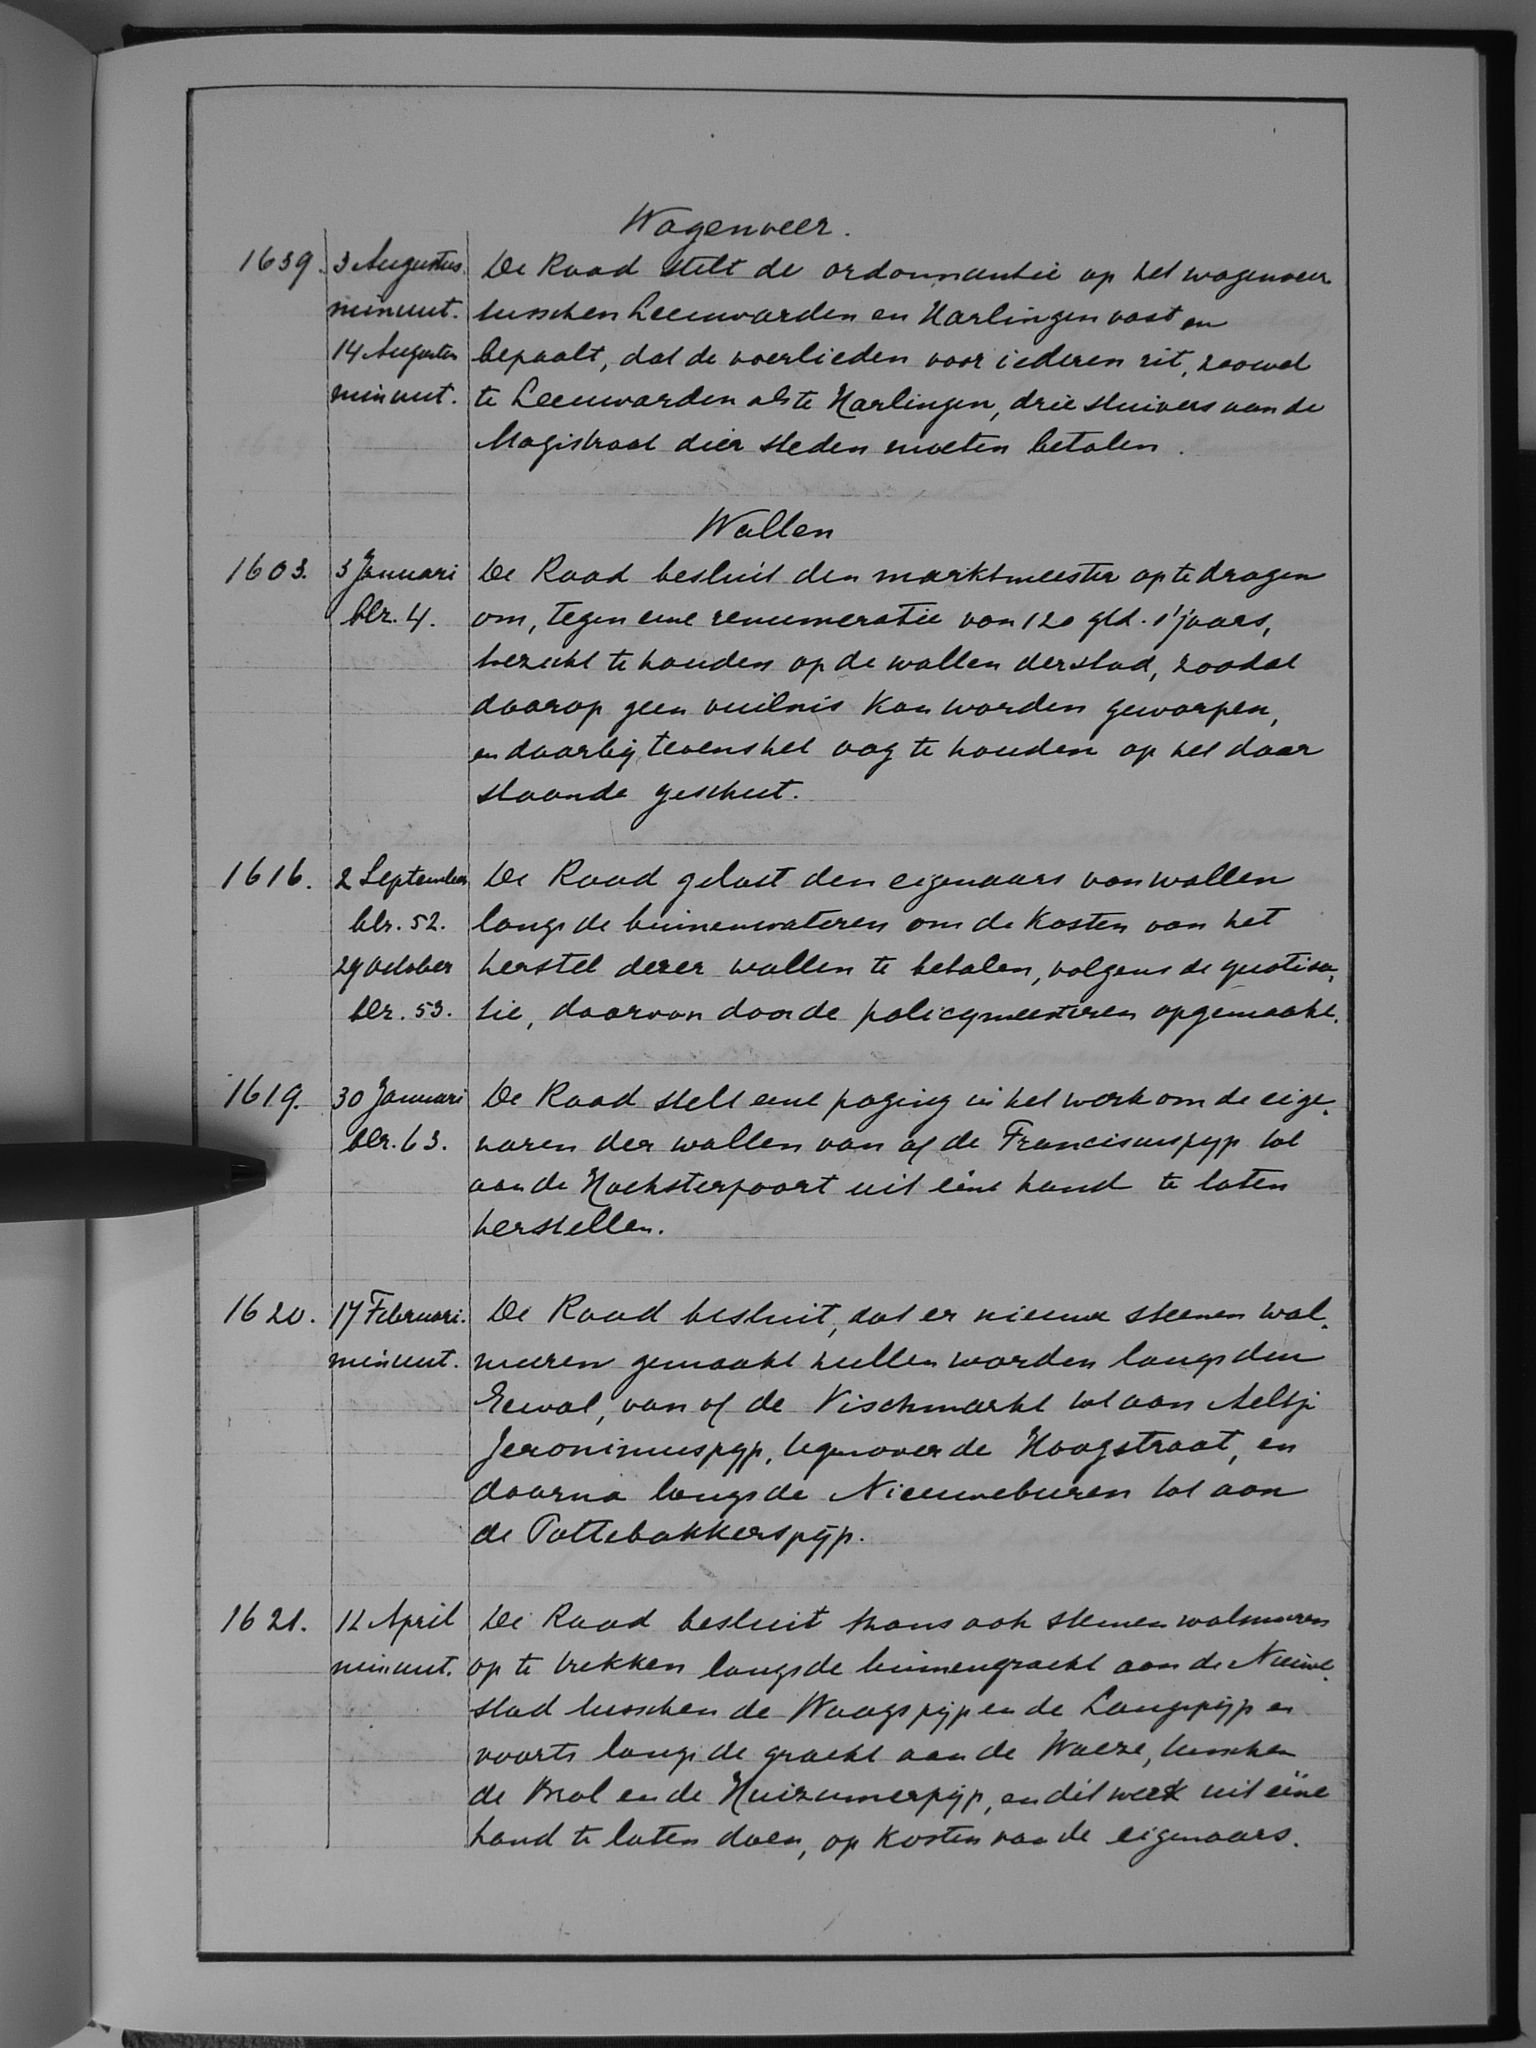 Wagenveer.
1639. 3 Augustus De Raad stelt de ordonnantie op het wagenveer
minuut. tusschen Leeuwarden en Harlingen vast en
14 Augustus bepaalt, dat de voerlieden voor iederen rit, zoowel
minuut. te Leeuwarden als te Harlingen, drie stuivers aan de
Magistraat dier steden moeten betalen.
Wallen
1603. 3 Januari De Raad besluit den marktmeester op te dragen
blz. 4. om, tegen eene renumeratie van 120 gld. 's jaars,
toezicht te houden op de wallen der stad, zoodat
daarop geen vuilnis kan worden geworpen,
en daarbij tevens het oog te houden op het daar
staande geschut.
1616. 2 September De Raad gelast den eigenaars van wallen
blz. 52. langs de binnenwateren om de kosten van het
29 October herstel dezer wallen te betalen, volgens de quotisa-
blz. 53. tie, daarvan door de policymeesteren opgemaakt.
1619. 30 Januari De Raad stelt eene poging in het werk om de eige-
blz. 63. naren der wallen van af de Franciscuspyp tot
aan de Hoeksterpoort uit ééne hand te laten
herstellen.
1620. 17 Februari. De Raad besluit, dat er nieuwe steenen wal-
minuut. muren gemaakt zullen worden langs den
Eewal, van af de Vischmarkt tot aan Aeltje
Jeronimuspyp, tegenover de Hoogstraat, en
daarna langs de Nieuweburen tot aan
de Pottebakkerspijp.
1621. 12 April De Raad besluit thans ook steenen walmuren
minuut. op te trekken langs de binnengracht aan de Nieuwe-
stad tusschen de Waagspijp en de Langepijp en
voorts langs de gracht aan de Waeze, tusschen
de Brol en de Huizumerpijp, en dit werk uit ééne
hand te laten doen, op kosten van de eigenaars.